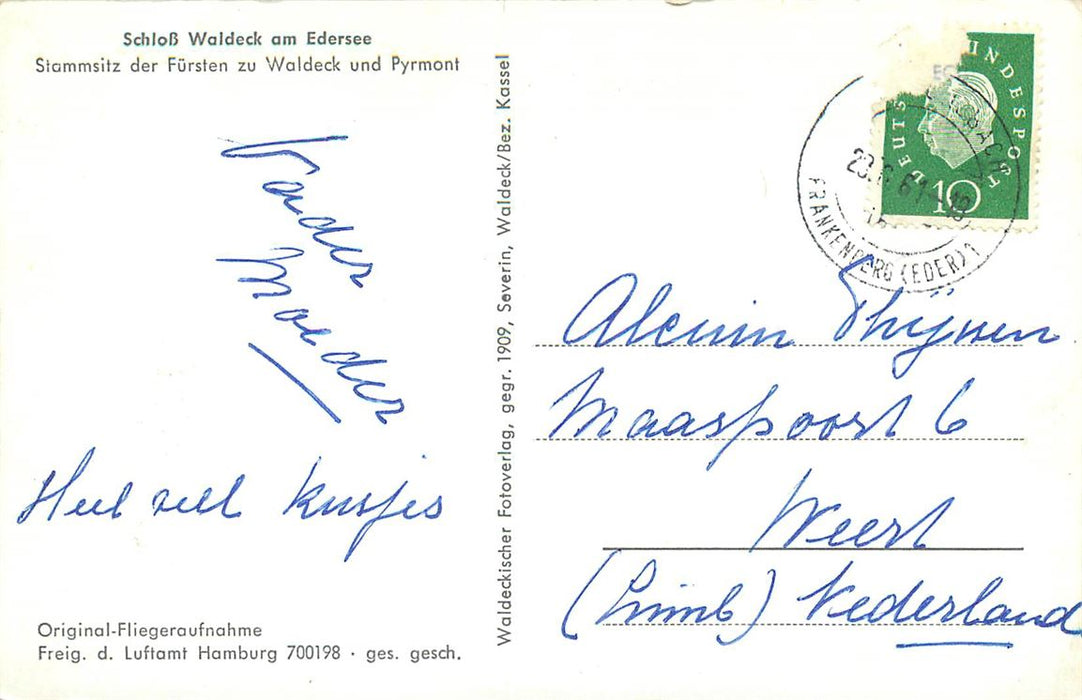 Schloß Waldeck am Edersee
Stammsitz der Fürsten zu Waldeck und Pyrmont
Vader
Moeder
Heel veel kusjes
Original-Fliegeraufnahme
Freig. d. Luftamt Hamburg 700198 · ges. gesch.
Waldeckischer Fotoverlag, gegr. 1909, Severin, Waldeck/Bez. Kassel
DEUTS INDESPOST
10
FRANKENBERG (EDER) 1
Alcuin Thijssen
Maaspoort 6
Weert
(Limb) Nederland